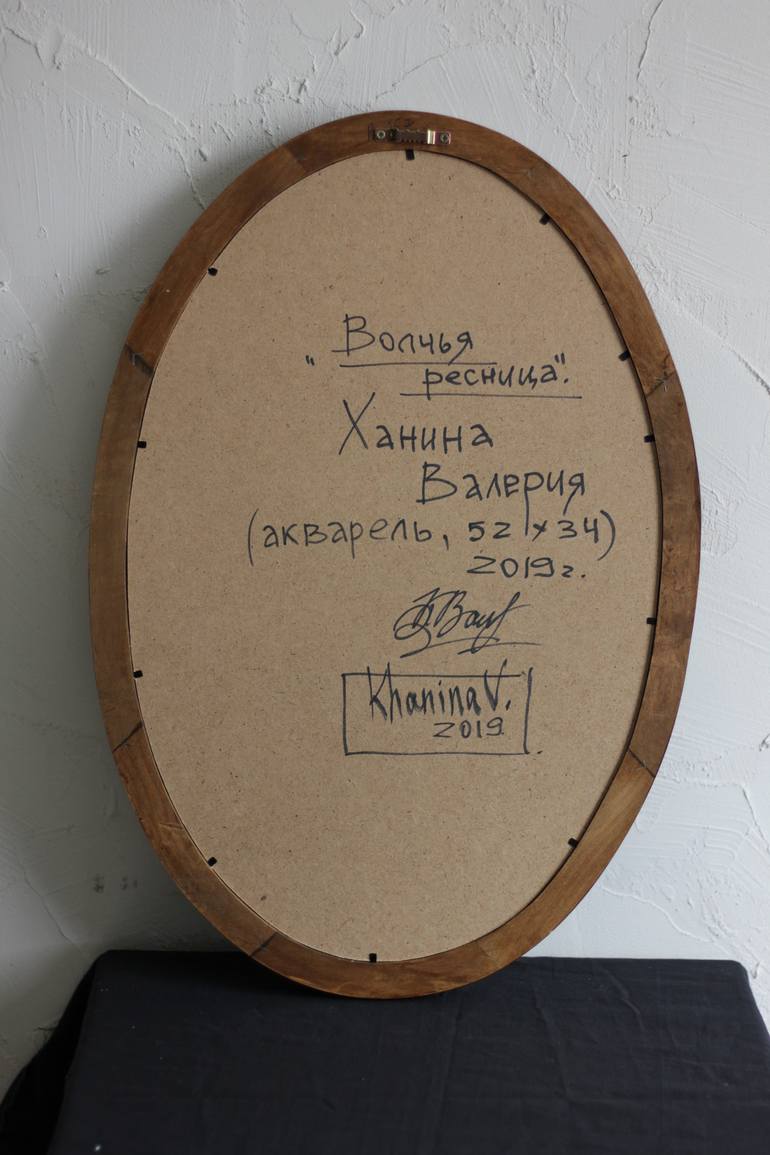 "Волчья
ресница".
Ханина
Валерия
(акварель, 52 x 34)
2019г.
Khanina V.
2019